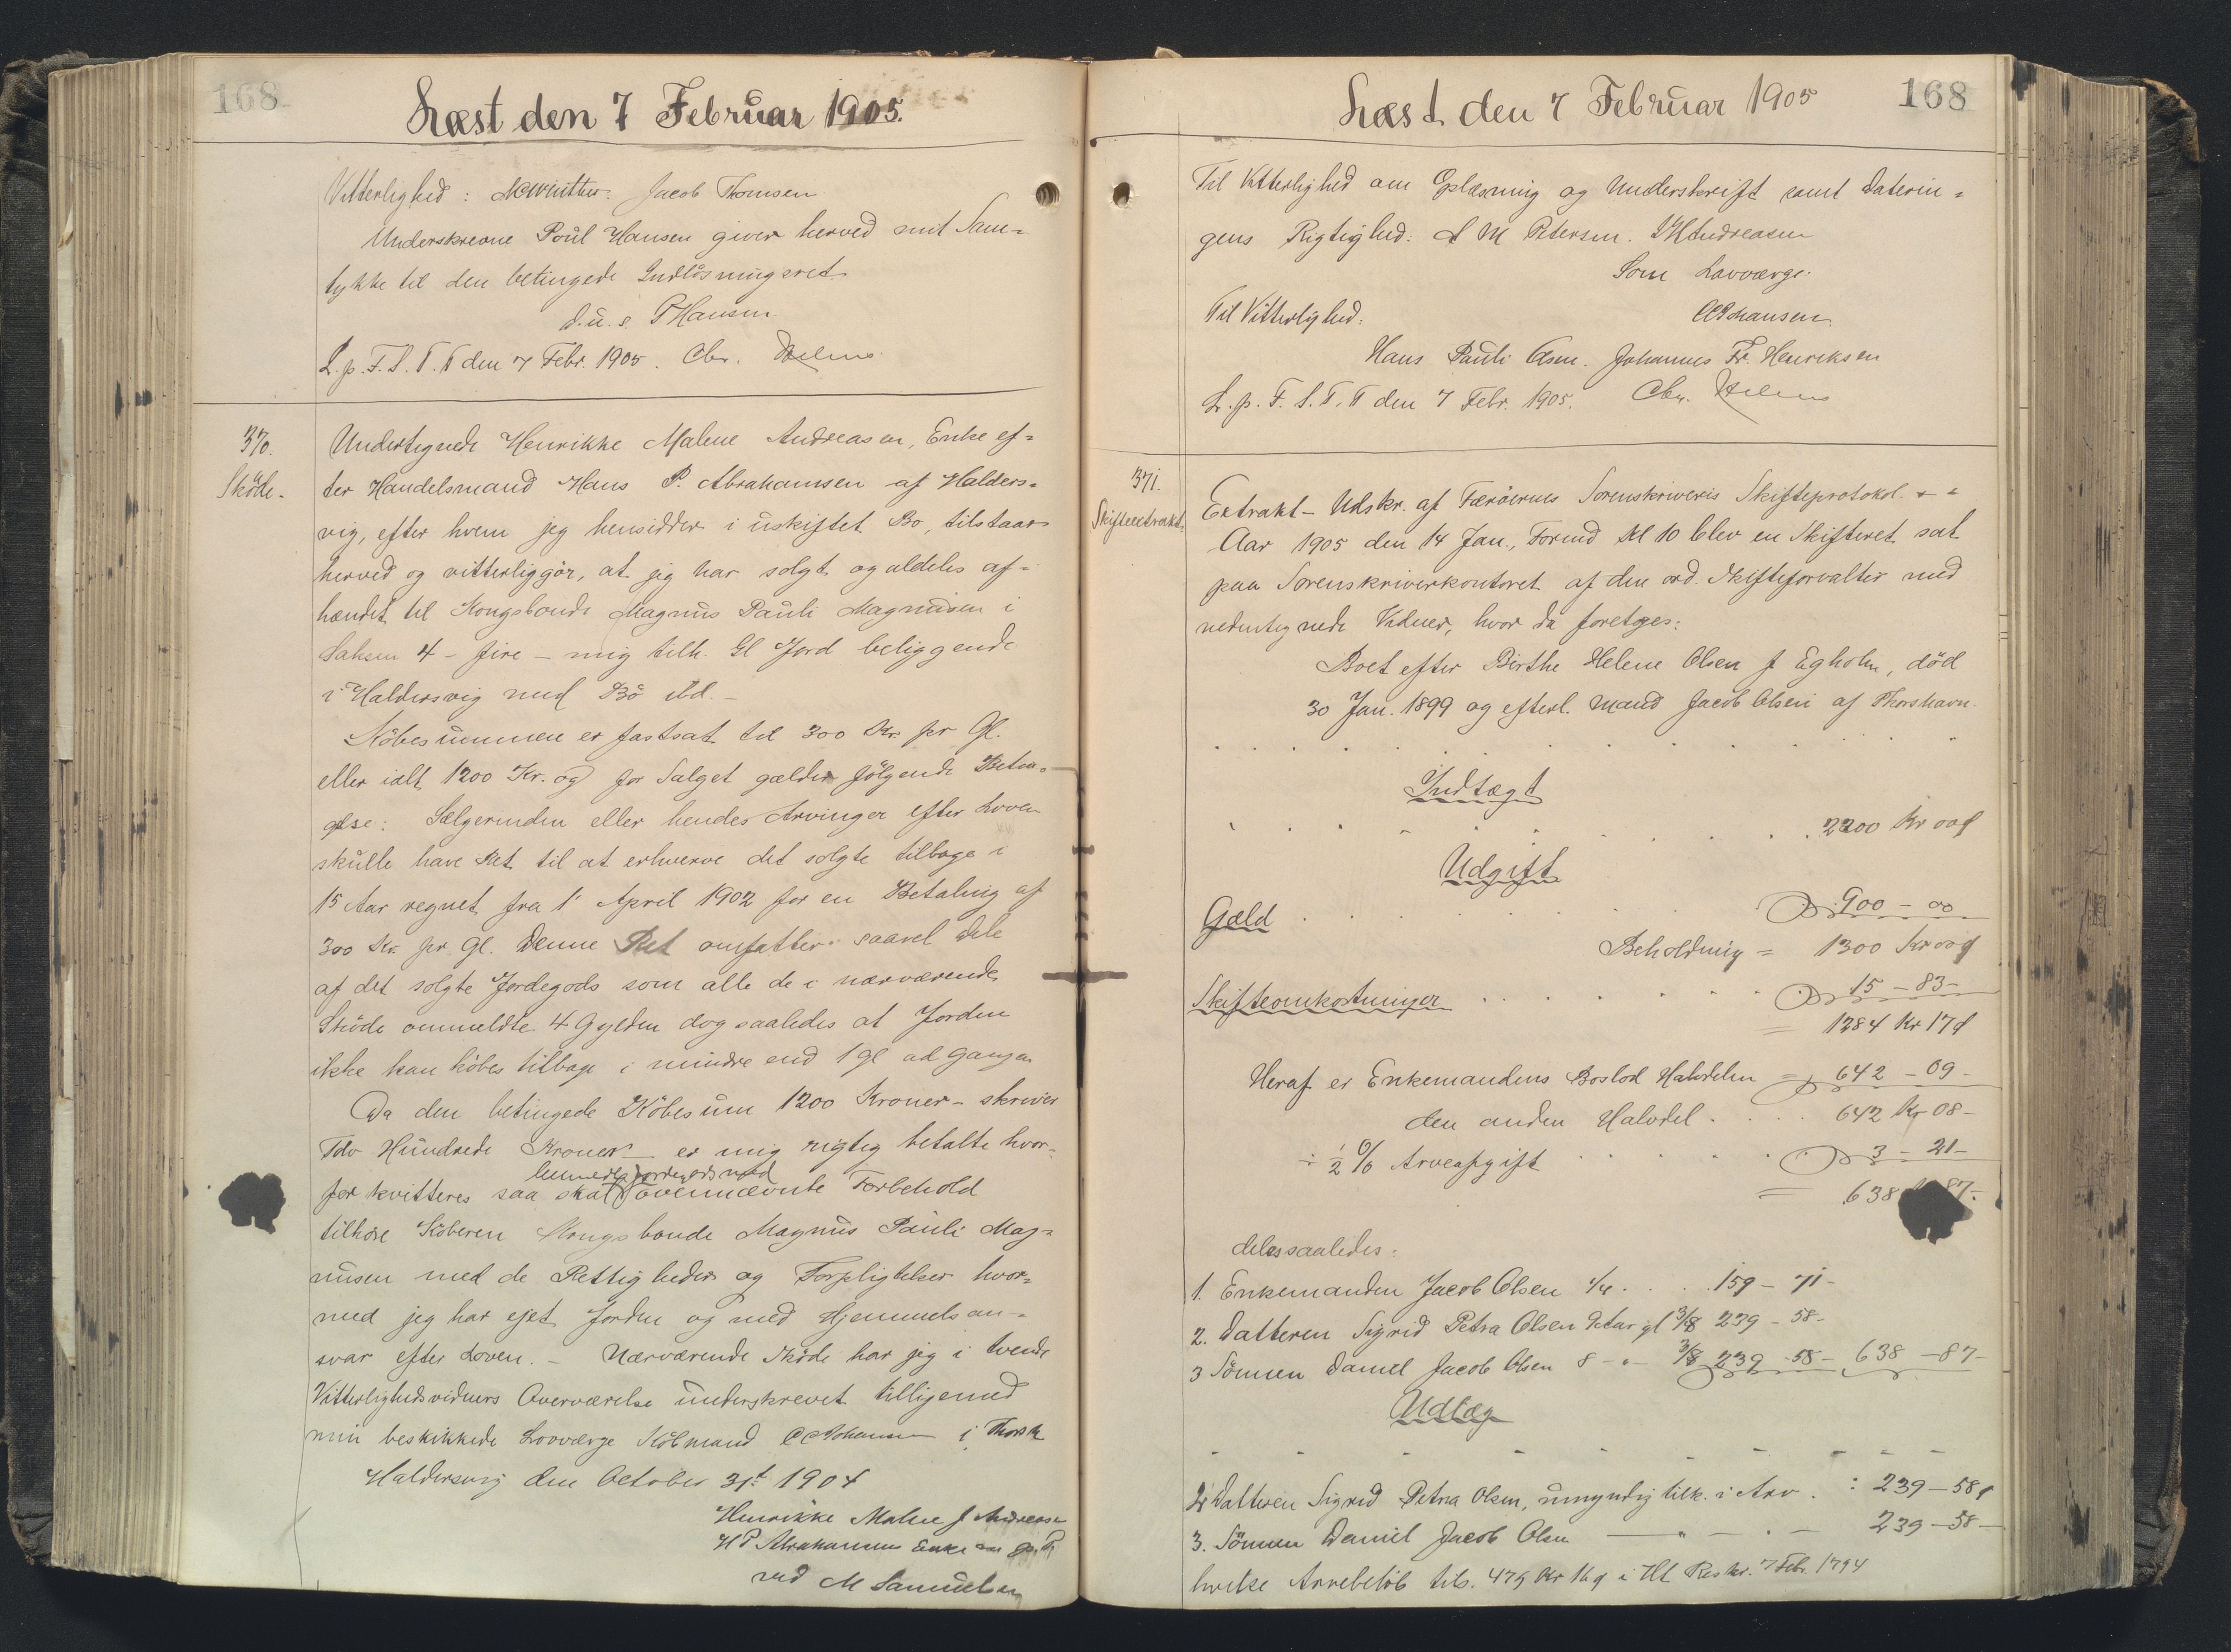 168
Læst den 7 Februar 1905.
Vitterlighed: Jacob Thomsen
Underskrevne Poul Hansen giver herved mit Sam=
tykke til den betingede Indlösningsret
d.u.s. P Hansen
L. p. F. S. T. T den 7 Febr. 1905. Chr.
370.
Sköde.
Undertegnede Henrikke Malene Andreasen, Enke ef=
ter Handelsmand Hans P. Abrahamsen af Halders=
vig, efter hvem jeg hensidder i uskiftet Bo, tilstaar
herved og vitterliggör, at jeg har solgt og aldeles af=
hændet til Kongsbonde Magnus Pauli Magnusen i
Saksen 4 - fire - mig tilh. Gl Jord beliggende
i Haldersvig med Bö ibd. -
Köbesummen er fastsat til 300 Kr. pr Gl.
eller ialt 1200 Kr. og for Salget gælder fölgende Betin=
gelse: Sælgerinden eller hendes Arvinger efter Loven
skulle have Ret til at erhverve det solgte tilbage i
15 Aar regnet fra 1' April 1902 for en Betaling af
300 Kr. pr. Gl. Denne Ret omfatter saavel dele
af det solgte Jordegods som alle de i nærværende
Sköde ommeldte 4 Gylden dog saaledes at Jorden
ikke kan köbes tilbage i mindre end 1 gl ad Gangen
Da den betingede Köbesum 1200 Kroner - skriver
Tolv Hundrede Kroner - er mig rigtig betalte hvor=
bemeldte Jordegods med
for kvitteres saa skal ovennævnte Forbehold
tilhöre Köberen Kongsbonde Magnus Pauli Mag=
nusen med de Rettigheder og Forpligtelser hvor=
med jeg har ejet Jorden og med Hjemmelsan=
svar efter Loven. - Nærværende Sköde har jeg i tvende
Vitterlighedsvidners Overværelse underskrevet tilligemed
min beskikkede Lovværge Köbmand i Thorsh
Haldersvig den October 31t 1904
Henrikke Malene f Andreasen
H P Abrahamsens Enke
ved M Samuelsen
Læst den 7 Februar 1905
168
Til Vitterlighed om Oplæsning og Underskrift samt Daterin=
gens Rigtighed: A M Petersen. Andreasen
Som Lavværge
Til Vitterlighed:
Hans Pauli Johannes Fr. Henriksen
L. p. F. S. T. T den 7 Febr. 1905. Chr.
371.
Skifteextrakt.
Extrakt - Udskr. af Færöernes Sorenskriveris Skifteprotokol. - -
Aar 1905 den 14 Jan., Formd Kl 10 blev en Skifteret sat
paa Sorenskriverkontoret af den ord. Skifteforvalter med
nedentegnede Vidner, hvor da foretoges:
Boet efter Birthe Helene Olsen f Egholm, död
30 Jan. 1899 og efterl. Mand Jacob Olsen af Thorshavn.
Indtægt
2200 Kr 00 f
Udgift
Gæld . . . . . . 900 - 00
Beholdning = 1300 Kr 00 f
Skifteomkostninger . . . . . . 15 - 83 -
= 1284 Kr 17 f
Heraf er Enkemandens Boslod Halvdelen = 642 - 09 -
den anden Halvdel . . . . 642 Kr 08 -
÷ 1/2 % Arveafgift . . . . . 3 - 21 -
= 638 87 -
deles saaledes:
1. Enkemanden Jacob Olsen 1/4 . . . 159 - 71 -
2. Datteren Sigrid Petra Olsen gl 3/8 239 - 58 -
3 Sönnen Daniel Jacob Olsen 8 - " - 3/8 239 - 58 - 638 - 87 -
Udlæg
2 Datteren Sigrid Petra Olsen, umyndig tilk. i Arv . : 239 - 58 f
3. Sönnen Daniel Jacob Olsen - " - " - 239 - 58 -
hvilke Arvebelöb tils. 479 Kr 16 f i Hl Reskr. 7 Febr. 1794